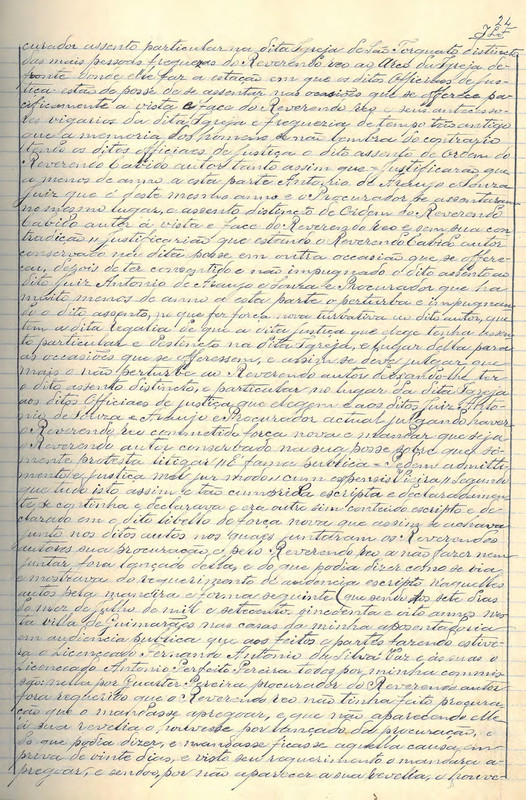 24
curador assento particular na dita Igreja de São Torquato distincto
das mais pessoas freguezas do Reverendo reo ao Arco da Igreja de-
fronte donde elle faz a estação em que os ditos Officiaes de jus-
tiça estão de posse de se assentar nas occasiões que se offerece pa-
cificamente a vista e face do Reverendo reo e seus antecesso-
res vigarios da dita Igreja e freguezia de tempo tão antigo
que a memoria dos homens se não lembra do contrario
tendo os ditos officiaes de justiça o dito assento de ordem do
Reverendo Cabido autor tanto assim que = justificarão que
a menos de anno a esta parte Antonio de Araujo e Souza
juiz que é deste mesmo anno e o Procurador se assentaram
no mesmo lugar, e assento distincto de Ordem do Reverendo
Cabido autor á vista e face do Reverendo reo e sem sua con-
tradição = justificarião que estando o Reverendo Cabido autor
conservado na dita posse em outra occasião que se offere-
ceu, depois de ter consentido e não impugnado o dito assento ao
dito juiz Antonio de Araujo e Souza e Procurador que ha
muito menos de anno a esta parte o perturba e impugnan-
do o dito assento, no que fez força nova turbativa ao dito autor, que
tem a dita regalia de que a dita justiça que elege tenha assen-
to particular e distincto na dita Igreja, e lugar della para
as occasiões que se offeressem, e assim se deve julgar e que
mais o não perturbe ao Reverendo autor deixando lhe ter
o dito assento distincto, e particular no lugar da dita Igreja
aos ditos Officiaes de justiça que elegem e aos ditos juiz Anto-
nio de Souza e Araujo e Procurador actual julgando haver
o Reverendo reo commetido força nova e mandar que seja
o Reverendo autor conservado na sua posse sobre que so-
mente protesta litigar = E fama publica = Pedem admitti-
mento e justiça meliori modo = cum expensis = Segundo
que tudo isto assim e tão cumprida escripta e declaradamen-
te se continha e declarava e era outro sim conteudo escripto e de-
clarado em o dito libello de força nova que assim se achava
junto nos ditos autos nos quaes juntaram os Reverendos
autores sua procuração, e pelo Reverendo reo a não fazer nem
juntar fora lançado della, e do que podia dizer como se via
e mostrava do requerimento de audiencia escripto naquelles
autos pela maneira e forma seguinte (que sendo aos sete dias
do mez de julho de mil e settecentos cincoenta e oito annos nes-
ta villa de Guimarães nas casas da minha aposentadoria
em audiencia publica que aos feitos e partes fazendo estive-
ra o Licenceado Fernando Antonio da Silva Vaz e ás mas o
Licenceado Antonio Perfeito Pereira todos por minha commis-
são nella por Pereira procurador do Reverendo autor
fora requerido que o Reverendo reo não tinha feito procura-
ção que o mandasse apregoar, e que não aparecendo elle
á sua revelia o houvesse por lançado da procuração, e
do que podia dizer, e mandasse ficasse aquella causa em
prova de vinte dias, e visto seu requerimento o mandara a-
pregoar, e sendo, por não aparecer a sua revelia, o houve